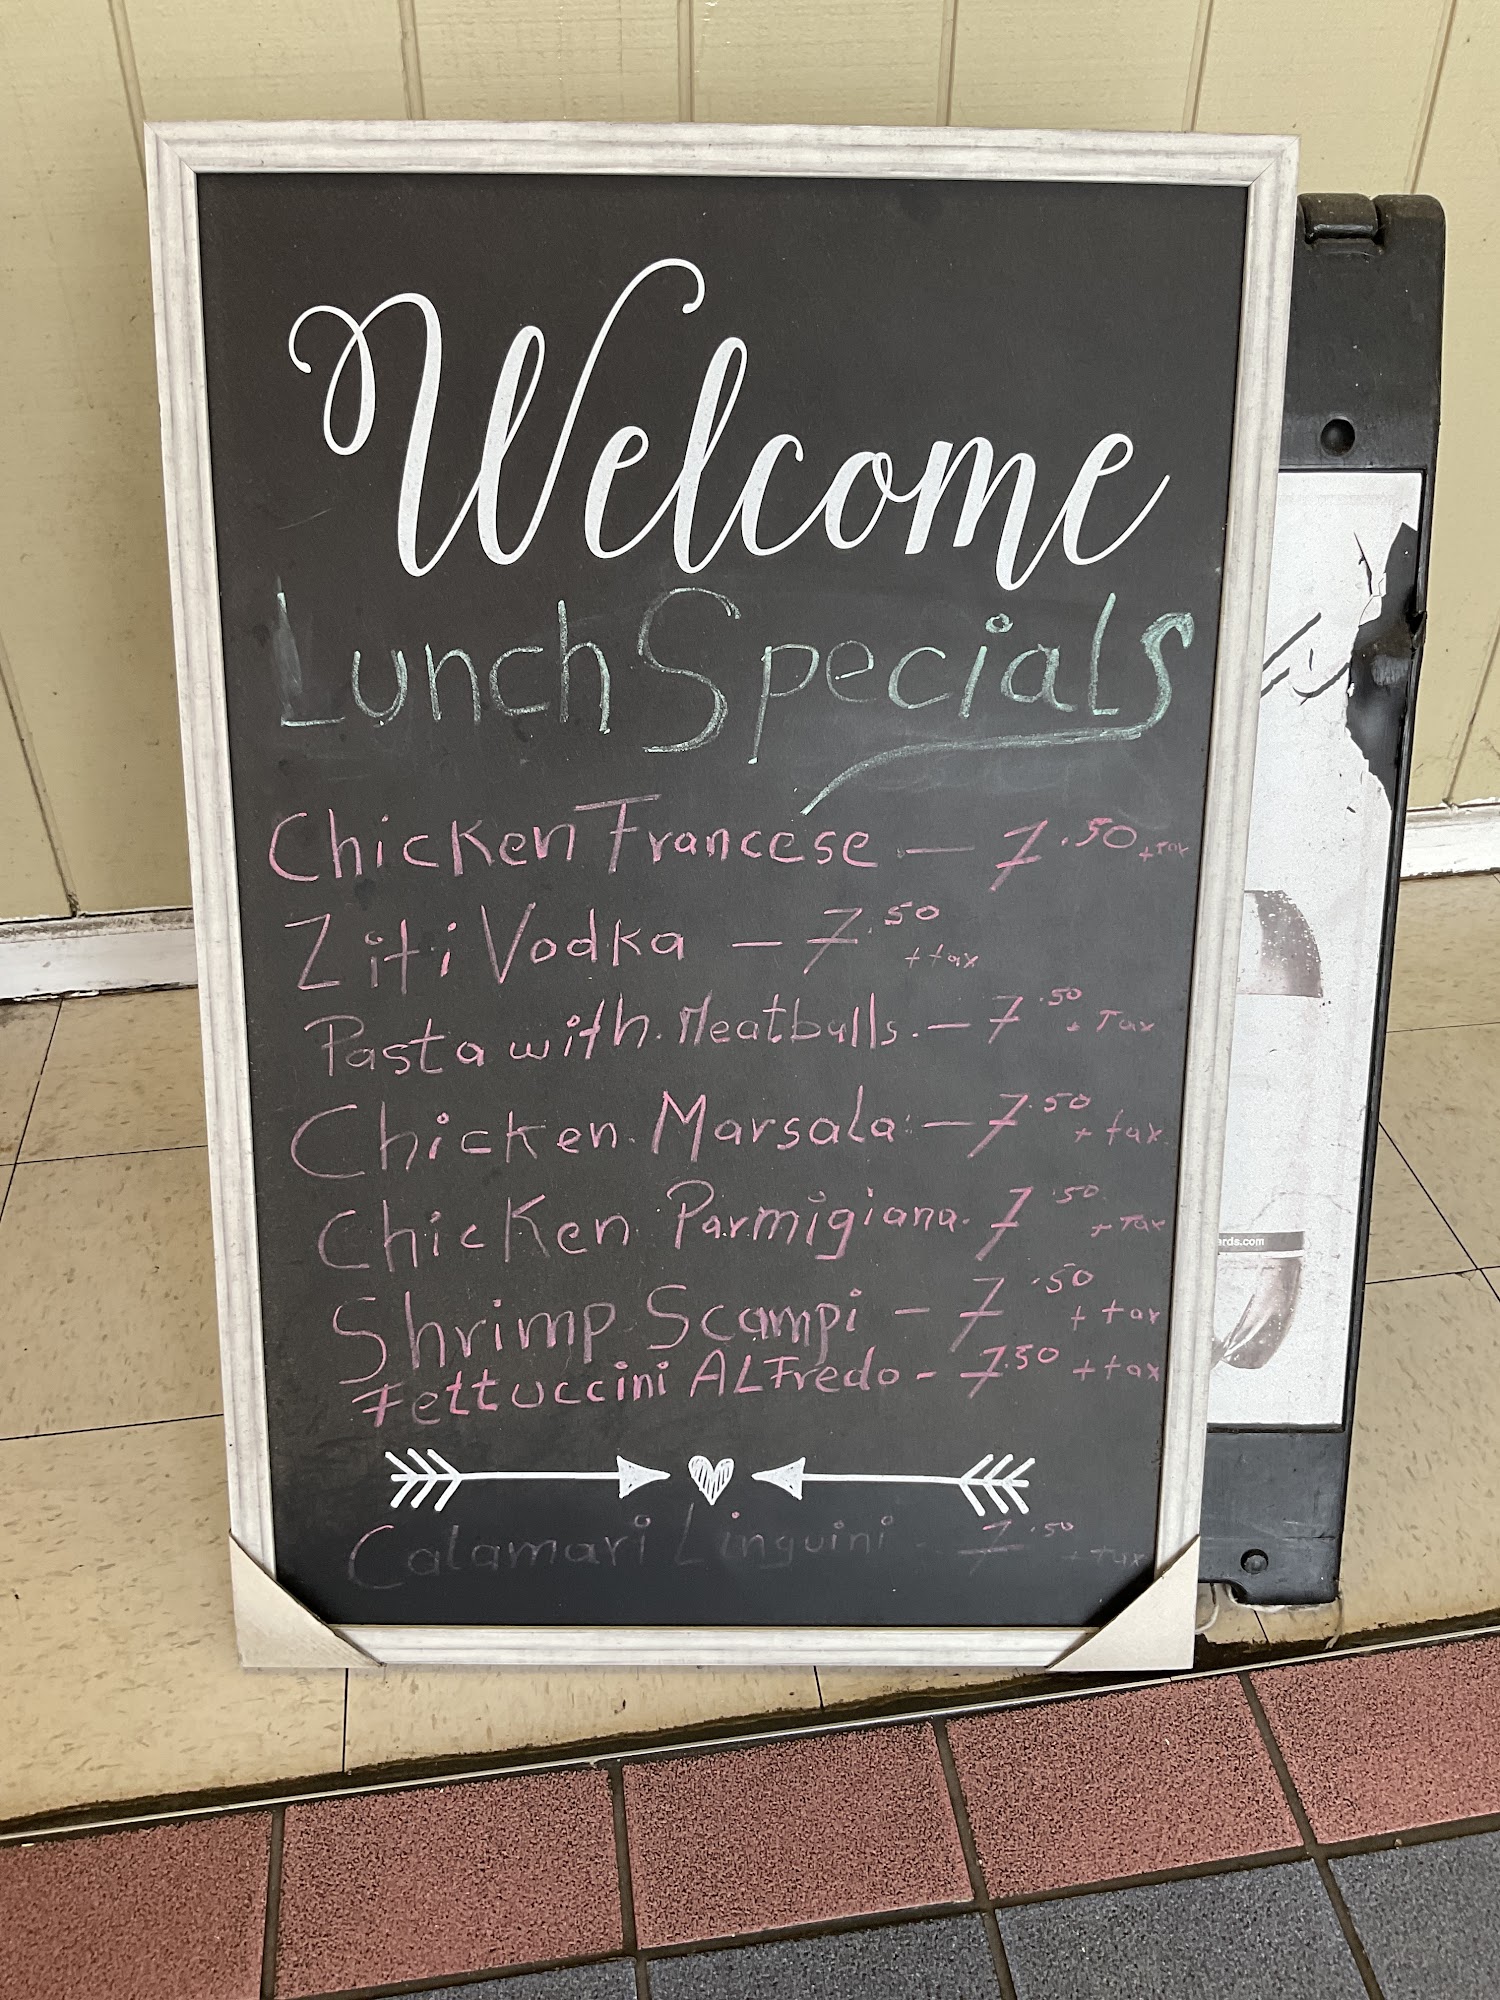 Welcome
Lunch Specials
Chicken Francese — 7.50 + Tax
Ziti Vodka — 7.50 + tax
Pasta with Meatballs — 7.50 + Tax
Chicken Marsala — 7.50 + tax
Chicken Parmigiana. 7.50 + Tax
Shrimp Scampi - 7.50 + tax
Fettuccini ALFredo - 7.50 + tax
Calamari Linguini - 7.50 + tax
ards.com